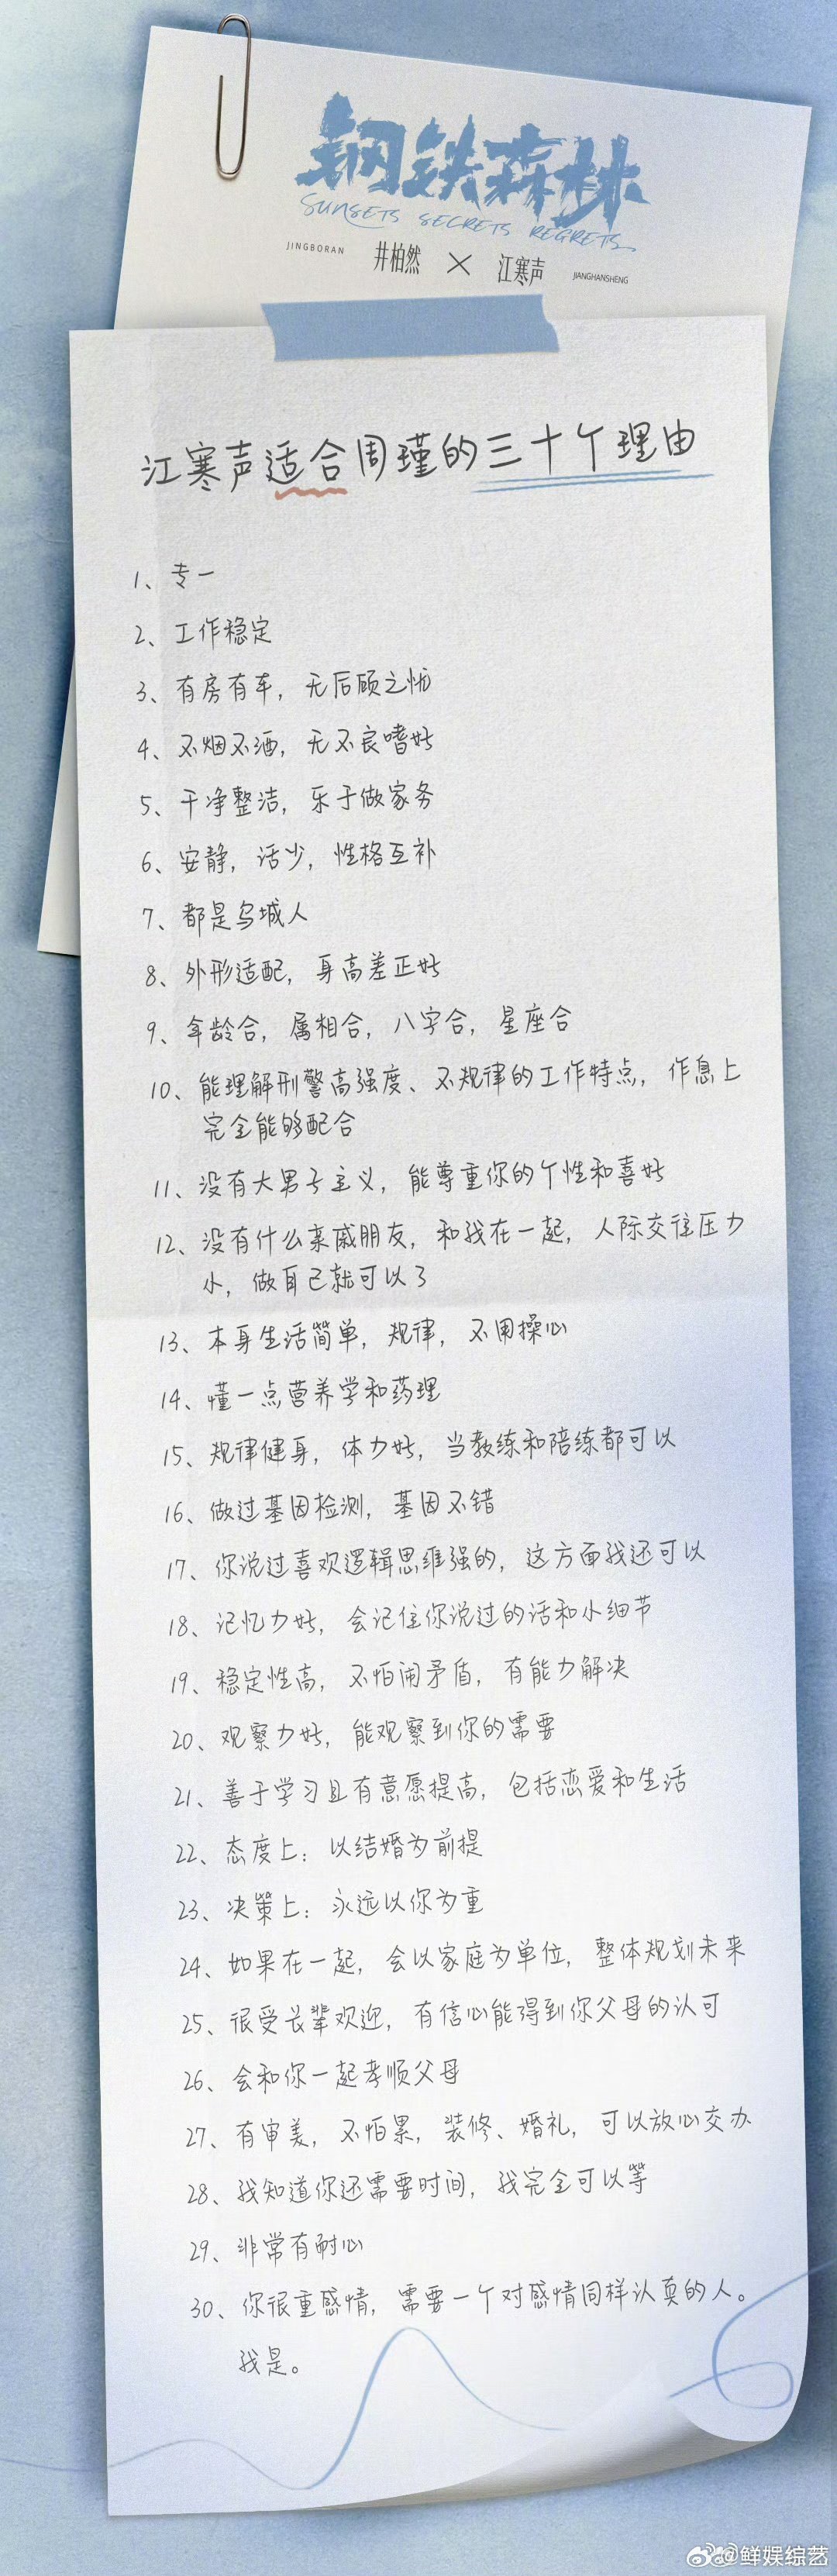 钢铁森林
SUNSETS SECRETS REGRETS
JINGBORAN 井柏然 × 江寒声 JIANGHANSHENG
江寒声适合周瑾的三十个理由
1、专一
2、工作稳定
3、有房有车，无后顾之忧
4、不烟不酒，无不良嗜好
5、干净整洁，乐于做家务
6、安静，话少，性格互补
7、都是乌城人
8、外形适配，身高差正好
9、年龄合，属相合，八字合，星座合
10、能理解刑警高强度、不规律的工作特点，作息上
完全能够配合
11、没有大男子主义，能尊重你的个性和喜好
12、没有什么亲戚朋友，和我在一起，人际交往压力
小，做自己就可以了
13、本身生活简单，规律，不用操心
14、懂一点营养学和药理
15、规律健身，体力好，当教练和陪练都可以
16、做过基因检测，基因不错
17、你说过喜欢逻辑思维强的，这方面我还可以
18、记忆力好，会记住你说过的话和小细节
19、稳定性高，不怕闹矛盾，有能力解决
20、观察力好，能观察到你的需要
21、善于学习且有意愿提高，包括恋爱和生活
22、态度上：以结婚为前提
23、决策上：永远以你为重
24、如果在一起，会以家庭为单位，整体规划未来
25、很受长辈欢迎，有信心能得到你父母的认可
26、会和你一起孝顺父母
27、有审美，不怕累，装修、婚礼，可以放心交办
28、我知道你还需要时间，我完全可以等
29、非常有耐心
30、你很重感情，需要一个对感情同样认真的人。
我是。
@鲜娱综艺